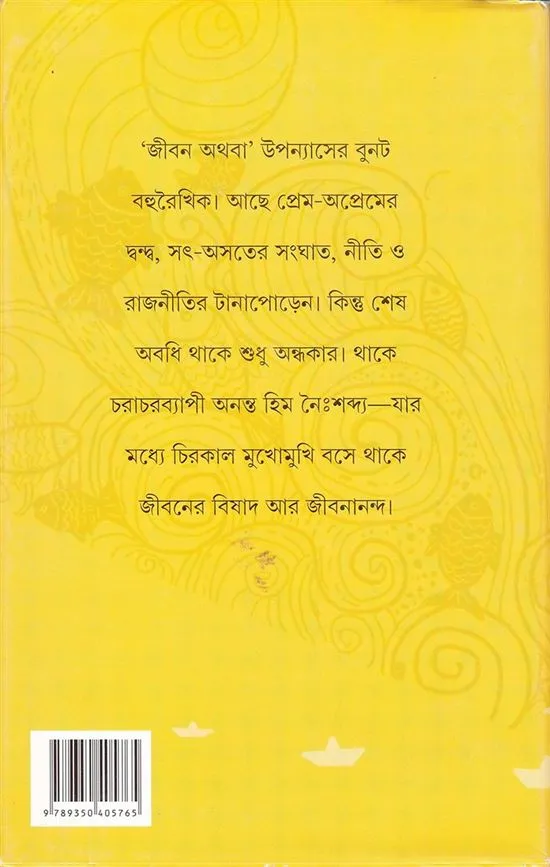 ‘জীবন অথবা’ উপন্যাসের বুনট
বহুরৈখিক। আছে প্রেম-অপ্রেমের
দ্বন্দ্ব, সৎ-অসতের সংঘাত, নীতি ও
রাজনীতির টানাপোড়েন। কিন্তু শেষ
অবধি থাকে শুধু অন্ধকার। থাকে
চরাচরব্যাপী অনন্ত হিম নৈঃশব্দ্য—যার
মধ্যে চিরকাল মুখোমুখি বসে থাকে
জীবনের বিষাদ আর জীবনানন্দ।
9 789350 405765